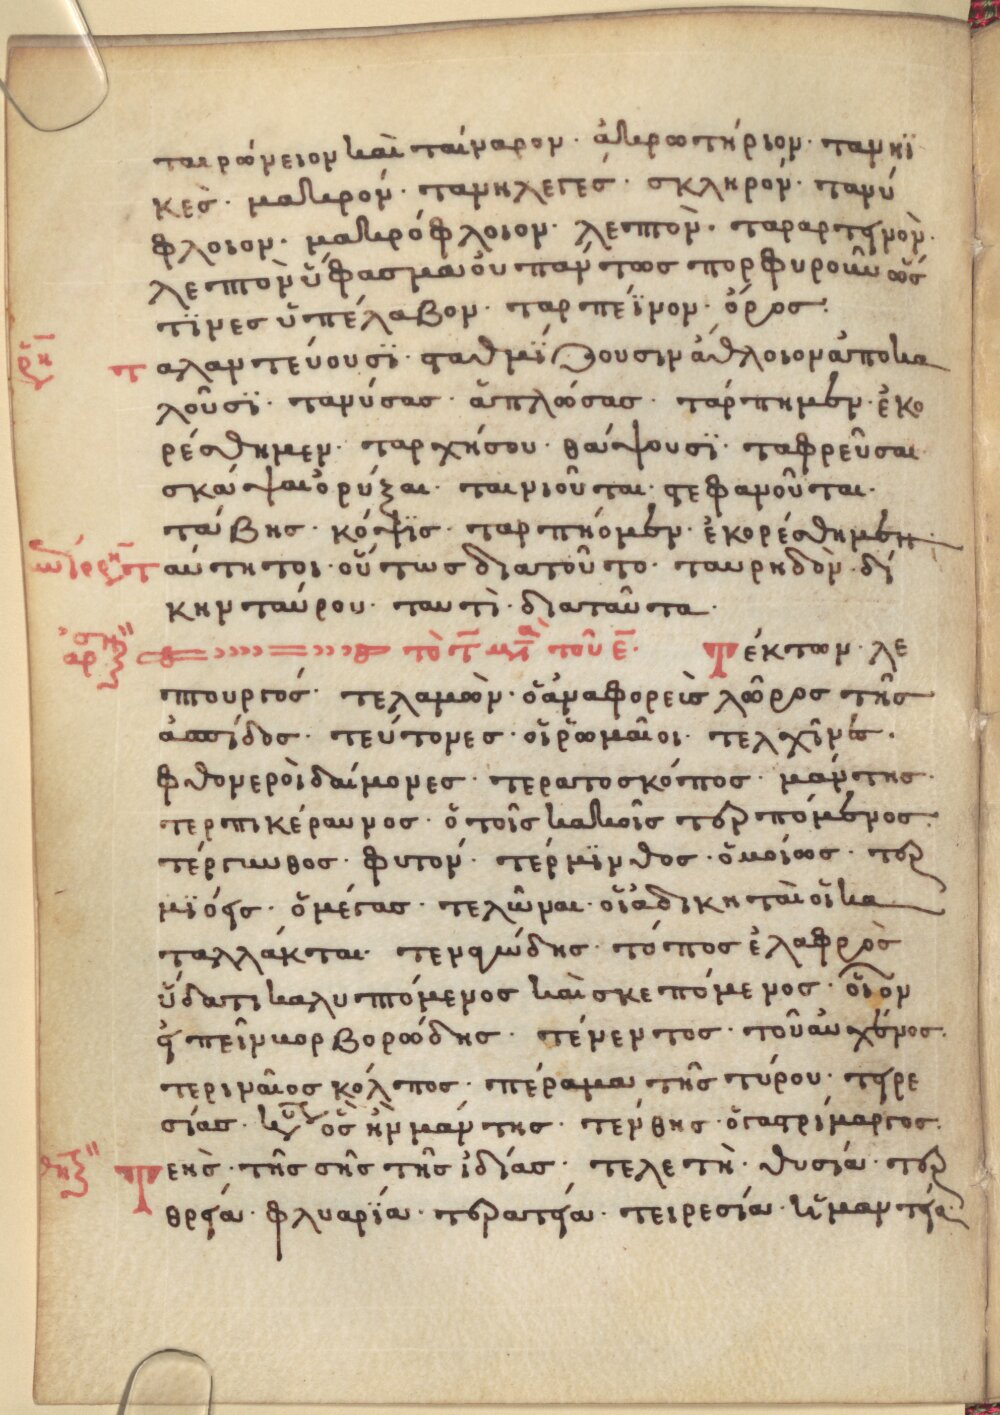 ταιρώνειον καὶ ταίναρον · ἀκρωτήριον · τανηϊ
κὲς · μακρόν · τανηλεγές · σκληρόν · τανύ
φλοιον · μακρόφλοιον · λεπτὸν · ταραντινὸν ·
λεπτὸν ὕφασμα οὐ πάντως πορφυροῦν ὥς
τϊνες ὑπέλαβον · ταρπέϊνον · ὄρος :
ῥῆ
ταλαντεύουσϊ · σταθμΐζουσιν ἀθλοιον ἀποκα
λοῦσϊ · τανύσας · ἁπλώσας · τάρπημεν · ἐκο
ρέσθημεν · ταρχήσου · θάψουσϊ · ταφρεῦσαι
σκάψαι ὀρύξαι · ταινιοῦται · στεφανοῦται ·
τάβης · κόψϊς · ταρπήομεν · ἐκορέσθημεν ·
ταύτητοι · οὕτως διατοῦτο · ταυρηδὸν · δί
κην ταύρου · ταυτὶ · διαταῦτα ·
ἀρ τὸ τ μετὰ τοῦ ε · Τέκτων · λε
πτουργός · τελαμὼν · ὁ ἀναφορεὺς λῶρος τῆς
ἀσπίδος · τεύτονες · οἱ ῥωμαῖοι · τελχῖνες ·
φθονεροὶ δαίμονες · τερατοσκόπος · μάντης ·
τερπικέραυνος · ὁ τοῖς κακοῖς τερπόμενος ·
τέργανθος · φυτόν · τέρμϊνθος · ὁμοίως · τερ
μϊόεις · ὁ μέγας · τελῶναι · οἱ ἄδικηταὶ οἱ κα
ταλλάκται · τεναγώδης · τόπος ἐλαφρὸς
ὕδατι καλυπτόμενος καὶ σκεπόμενος · οἷον
εἰπεῖν κορβορώδης · τένεντος · τοῦ αὐχένος ·
τεριναῖος κόλπος · πέραμα τῆς τύρου · τειρε
σίας · κύριον ὃς ἦν μάντης · τένθης · ὁ γαστρίμαργος ·
Τεῆς · τῆς σῆς τῆς ἰδίας · τελετὴ · θυσία · τερ
θρεία · φλυαρΐα · τερατεία · τειρεσία · ἡ μαντεία